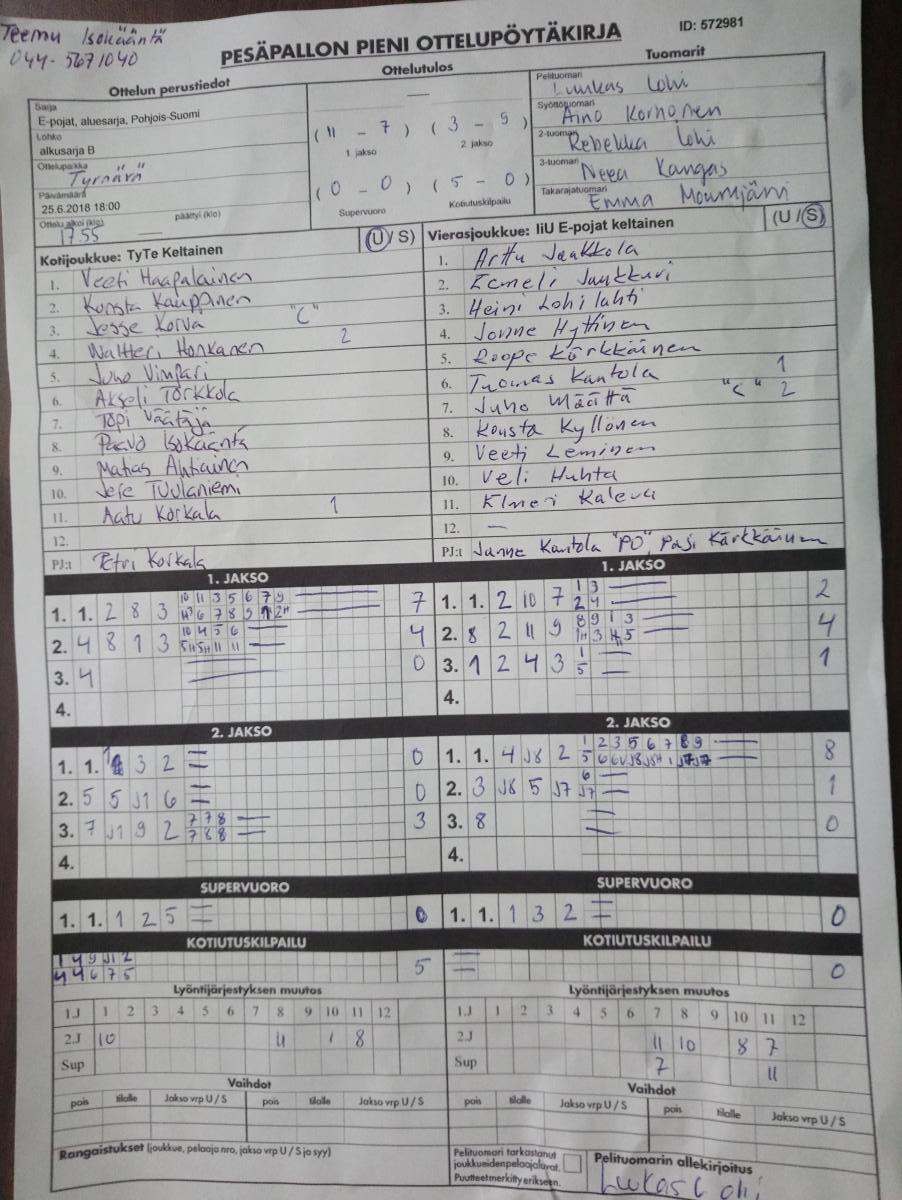 Teemu Isokääntä
044-5671040
PESÄPALLON PIENI OTTELUPÖYTÄKIRJA
ID: 572981
Ottelun perustiedot
Sarja
E-pojat, aluesarja, Pohjois-Suomi
Lohko
alkusarja B
Ottelupaikka
Tyrnävä
Päivämäärä
25.6.2018 18:00
Ottelu alkoi (klo) päättyi (klo)
17.55 —
Ottelutulos
—
(11 - 7) (3 - 9)
1. jakso 2. jakso
(0 - 0) (5 - 0)
Supervuoro Kotiutuskilpailu
Tuomarit
Pelituomari
Luukas Lohi
Syöttötuomari
Aino Korhonen
2-tuomari
Rebekka Lohi
3-tuomari
Neea Kangas
Takarajatuomari
Emma
Kotijoukkue: TyTe Keltainen (U / S)
1. Veeti Haapalainen
2. Konsta Kauppinen
3. Jesse Korva "C"
4. Waltteri Honkanen 2
5. Juho Vimpari
6. Akseli Törkkola
7. Topi Väätäjä
8. Paavo Isokääntä
9. Matias Ahtiainen
10. Jere Tuulaniemi
11. Aatu Korkala 1
12.
PJ:t Petri Korkala
Vierasjoukkue: IiU E-pojat keltainen (U / S)
1. Arttu Jaakkola
2. Eemeli Jaukkuri
3. Heini Lohilahti
4. Jonne Hyttinen
5. Roope Kärkkäinen
6. Tuomas Kantola 1
7. Juho Määttä "C" 2
8. Konsta Kyllönen
9. Veeti Leminen
10. Veli Huhta
11. Elmeri Kaleva
12. —
PJ:t Janne Kantola "PO", Pasi Kärkkäinen
1. JAKSO
1. 1. 2 8 3 10 11 3 5 6 7 9 7
2. 4 8 1 3 10 4 5 6 4
5H 5H 11 11
3. 4 0
4.
1. JAKSO
1. 1. 2 10 7 1 3 2
2 4
2. 8 2 11 9 8 9 1 3 4
3. 1 2 4 3 1 1
5
4.
2. JAKSO
1. 1. 3 2 0
2. 5 5 J1 6 0
3. 7 J1 9 2 7 7 8 3
7 8 8
4.
2. JAKSO
1. 1. 4 J8 2 1 2 3 5 6 7 8 9 8
2. 3 J8 5 J7 6 1
J7
3. 8 0
4.
SUPERVUORO
1. 1. 1 2 5 0
SUPERVUORO
1. 1. 1 3 2 0
KOTIUTUSKILPAILU
1 4 9 J1 2 5
4 4 6 7 5
KOTIUTUSKILPAILU
0
Lyöntijärjestyksen muutos
1.J 1 2 3 4 5 6 7 8 9 10 11 12
2.J 10 11 1 8
Sup
Lyöntijärjestyksen muutos
1.J 1 2 3 4 5 6 7 8 9 10 11 12
2.J 11 10 8 7
Sup 7 11
Vaihdot
pois tilalle Jakso vrp U / S pois tilalle Jakso vrp U / S
Vaihdot
pois tilalle Jakso vrp U / S pois tilalle Jakso vrp U / S
Rangaistukset (joukkue, pelaaja nro, jakso vrp U / S ja syy)
Pelituomari tarkastanut
joukkueiden pelaajaluvat.
Puutteet merkitty erikseen.
Pelituomarin allekirjoitus
Luukas Lohi